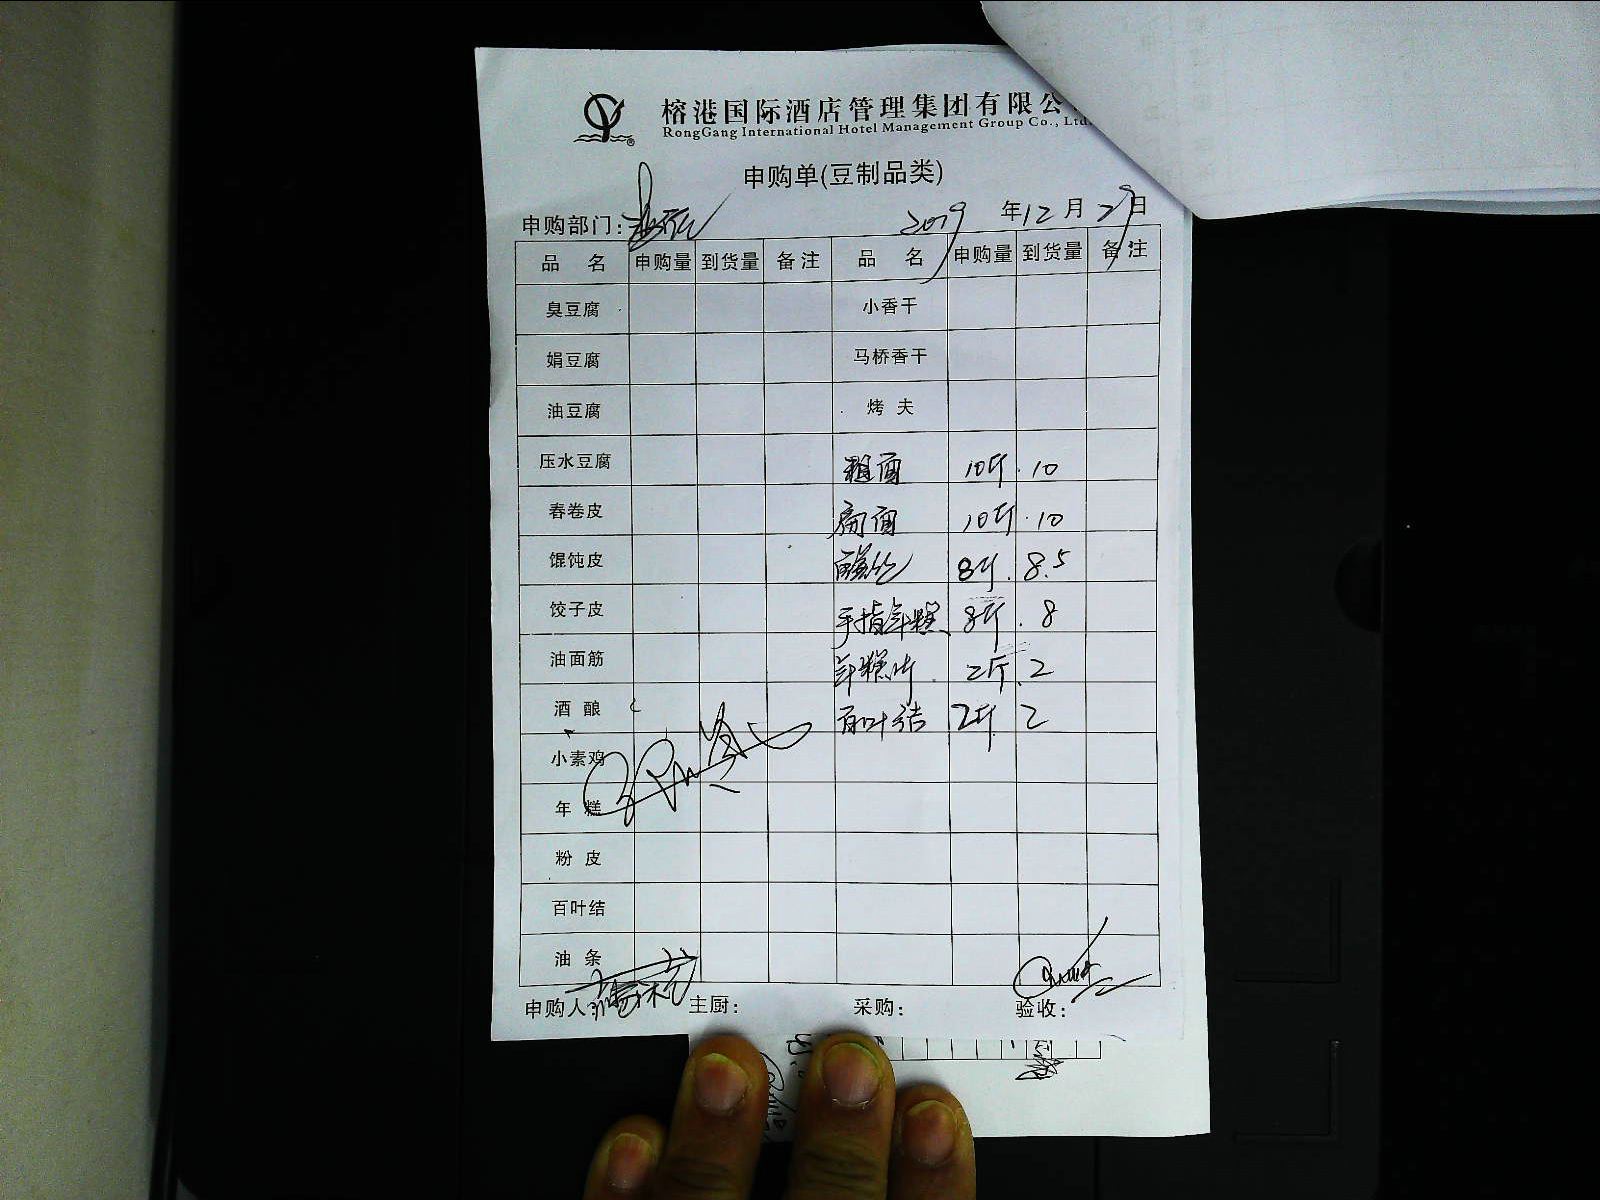 榕港国际酒店管理集团有限公
RongGang International Hotel Management Group Co., Ltd.
申购单(豆制品类)
申购部门: 2019 年 12 月 29 日
品 名 申购量 到货量 备注 品 名 申购量 到货量 备注
臭豆腐 小香干
娟豆腐 马桥香干
油豆腐 烤 夫
压水豆腐 粗面 10斤 10
春卷皮 扁面 10斤 10
馄饨皮 8斤 8.5
饺子皮 手指年糕 8斤 8
油面筋 年糕片 2斤 2
酒 酿 百叶结 2斤 2
小素鸡
年 糕
粉 皮
百叶结
油 条
申购人: 主厨: 采购: 验收: